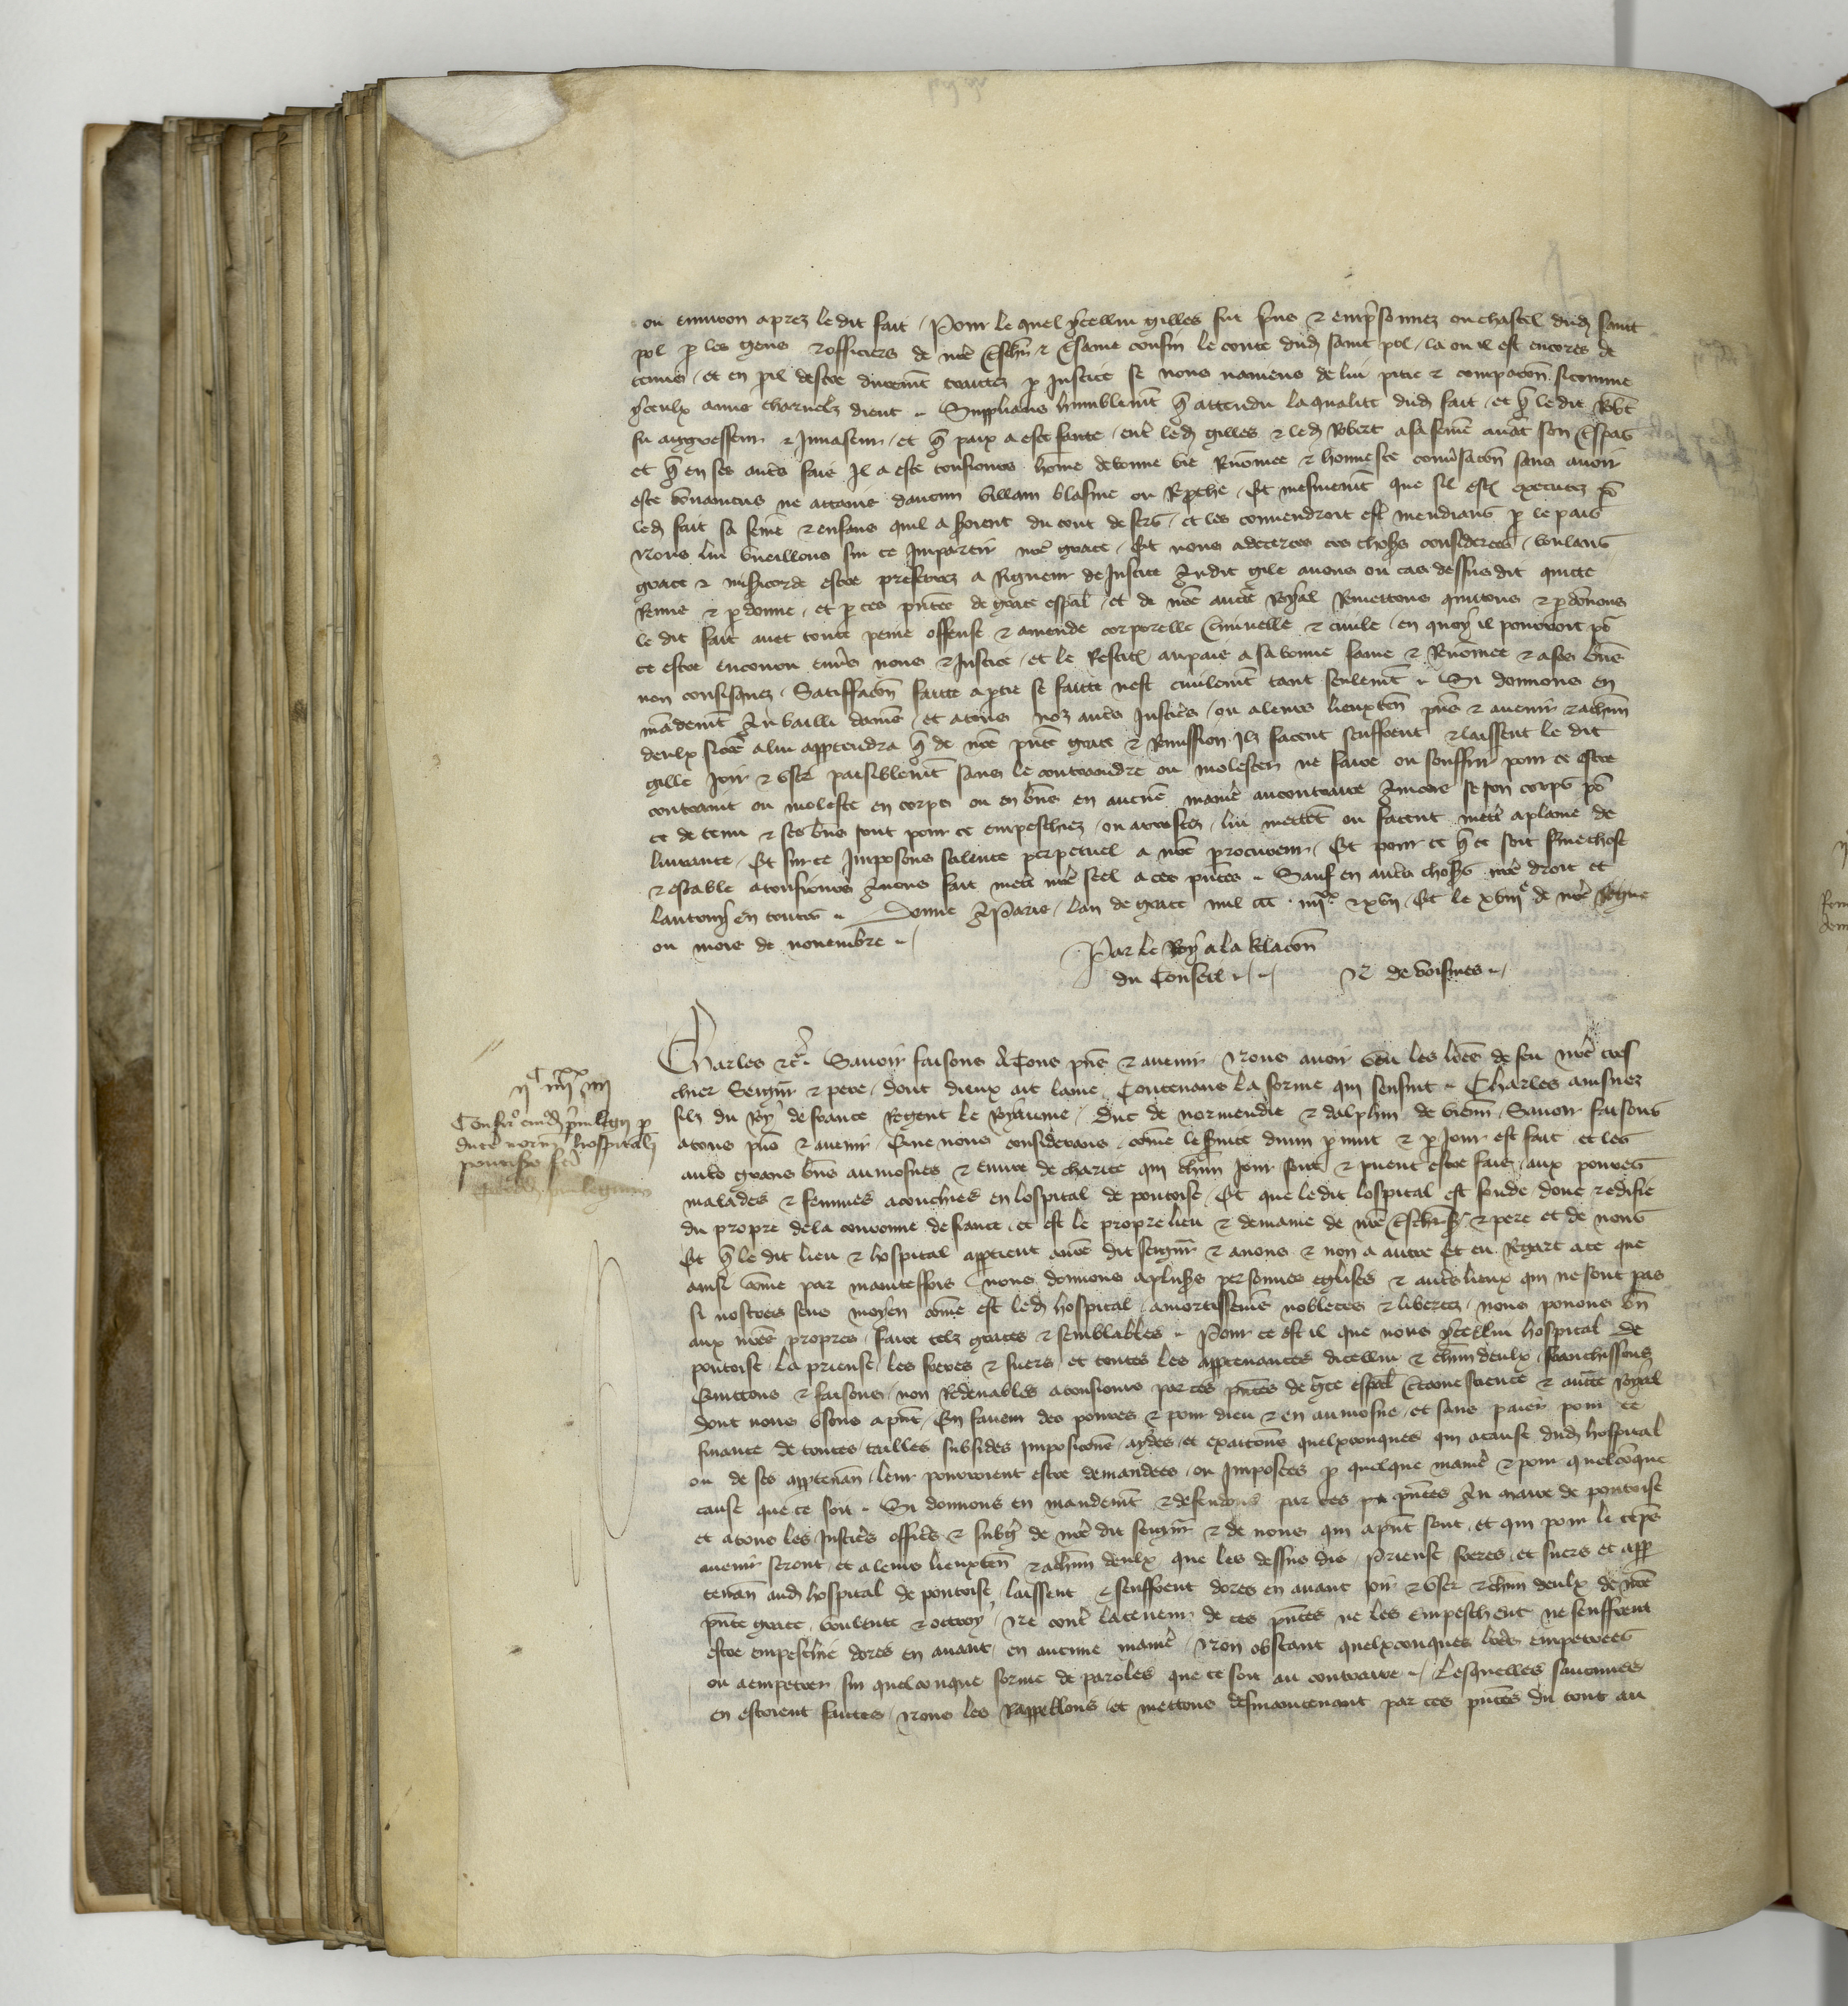 ou environ aprez le dit fait / Pour le quel ycellui gilles fut prins & emprisonnez ou chastel dud saint
pol p les gens & officiers de nre cousin le conte dud saint pol / la ou il est encores de
tenus / et en peril destre durement traictez p justice se nous naviens de lui pitie & compacion sicomme
yceulx amis charnelz dient Supplians humblemt q attendu la qualite dud fait / et q le dit Robt
fu aggresseur & Invaseur / et q paix a este faicte / entre led gilles & led Robert a sa feme avat son trespas
et q en ses autres fais Il a este tousiours home de bonne vie Renomee & honneste convsacon sans avoir
este convaincus ne attains daucun villain blasme ou Reproche / Et mesmemt que sil estoit executez po
led fait sa feme & enfans quil a seroient du tout desers / et les convendroit estre mendians p le pais
Nous lui vueillons sur ce Impartir nre grace / Et nous adecertes ces choses considerees / voulans
grace & misericorde estre preferees a Rigueur de Justice Audit gile avons ou cas dessusdit quitte
Remis & pdonne / et p ces pntes de grace espal / et de nre aucte Royal Remettons quittons & pdonnons
le dit fait avec toute peine offense & amende corporelle criminelle & civile / en quoy il pourroit po
ce estre encouru envs nous & Justice / et le Restituons au pais a sa bonne fame & Renomee & a ses biens
non confisquez / Satisfacon faicte a ptie se faicte nest civilemt tant seulemt Si donnons en
mademt Au bailli damiens / et a tous noz autres Justiciers / ou a leurs lieuxten pns & avenir & a chun
deulx sicoe a lui appartendra q de nre pnte grace & Remission Ilz facent seuffrent & laissent le dit
gille Joir & user paisiblemt sans le contraindre ou molester ne faire ou souffrir pour ce estre
contraint ou moleste en corps ou en biens en aucune maniere aucontraire Aincois se son corps po
ce detenu & ses biens sont pour ce empeschiez / ou arrestez / lui mettent ou facent mettre a plaine de
livrance / Et sur ce Imposons silence perpetuel a nre procureur / Et pour ce q ce soit ferme chose
& estable a tousiours Avons fait mettre nre seel a ces pntes Sauf en autres choses nre droit et
lautruy en toutes Donne A Paris / lan de grace mil ccc iiiixx & xvii / Et le xviiie de nre Regne
ou mois de novembre
Par le Roy a la Relacon
du Conseil N de voisines
Charles &c Savoir faisons A Tous pns & avenir Nous avoir veu les lres de feu nre tres
chier Seignr & pere / dont dieux ait lame Contenans la forme qui sensuit Charles ainsnez
filz du Roy de france Regent le Royaume / Duc de normendie & dalphin de vienn Savoir faisons
a tous pns & avenir Que nous considerans come le service divin p nuit & p Jour est fait et les
autres grans biens aumosnes & euvre de charite qui chun Jour sont & puent estre fais aux povres
malades & femmes acouchies en lospital de pontoise Et que le dit lospital est fonde / done & edifie
du propre de la couronne de france / et est le propre lieu & demaine de nre & pere et de nous
Et q le dit lieu & hospital apptient a nre dit seignr & a nous & non a autre Et eu Regart a ce que
ainsi come par maintes fois nous donnons a pluss personnes eglises & autres lieux qui ne sont pas
si nostres sens moyen come est led hospital / amortissemens noblesces & libertez / nous povons bn
aux nres propres faire telz graces & semblables Pour ce est il que nous ycellui hospital de
pontoise / la prieuse / les freres & suers et toutes les apptenances dicellui & chun deulx / franchissons
Quittons & faisons non Redevables a tousiours par ces pntes de grace espal certaine science & aucte Royal
dont nous usons a pnt / En faveur des povres & pour dieu & en aumosne / et sans paier pour ce
finance de toutes tailles subsides imposicions / aydes / et exactons quelxconques qui a cause dud hospital
ou de ses apptenan / leur pourroient estre demandees / ou Imposees p quelque maniere & pour quelcoque
cause que ce soit Si donnons en mandemt & defendons par ces pntes Au maire de pontoise
et a tous les Justiciers officiers & subgiez de nre dit seignr & de nous qui a pnt sont / et qui pour le teps
avenir seront / et a leurs lieuxten & a chun deulx / que les dessus dis / Prieuse freres / et suers et app
tenan aud hospital de pontoise / laissent & seuffrent dores en avant Joir & user & chun deulx de nre
pnte grace / voulente & ottroy / Ne contre la teneur de ces pntes ne les empeschent / ne seuffrent
estre empeschie dores en avant / en aucune maniere / Non obstant quelxconques lres empetrees
ou a empetrer sur quelconque forme de paroles que ce soit au contraire / Lesquelles saucunes
en estoient faictes / Nous les Rappellons / et mettons desmaintenant par ces pntes du tout au
iic iiiixx iiii
Confir cuiusd privilegii p
duce norm hospitali